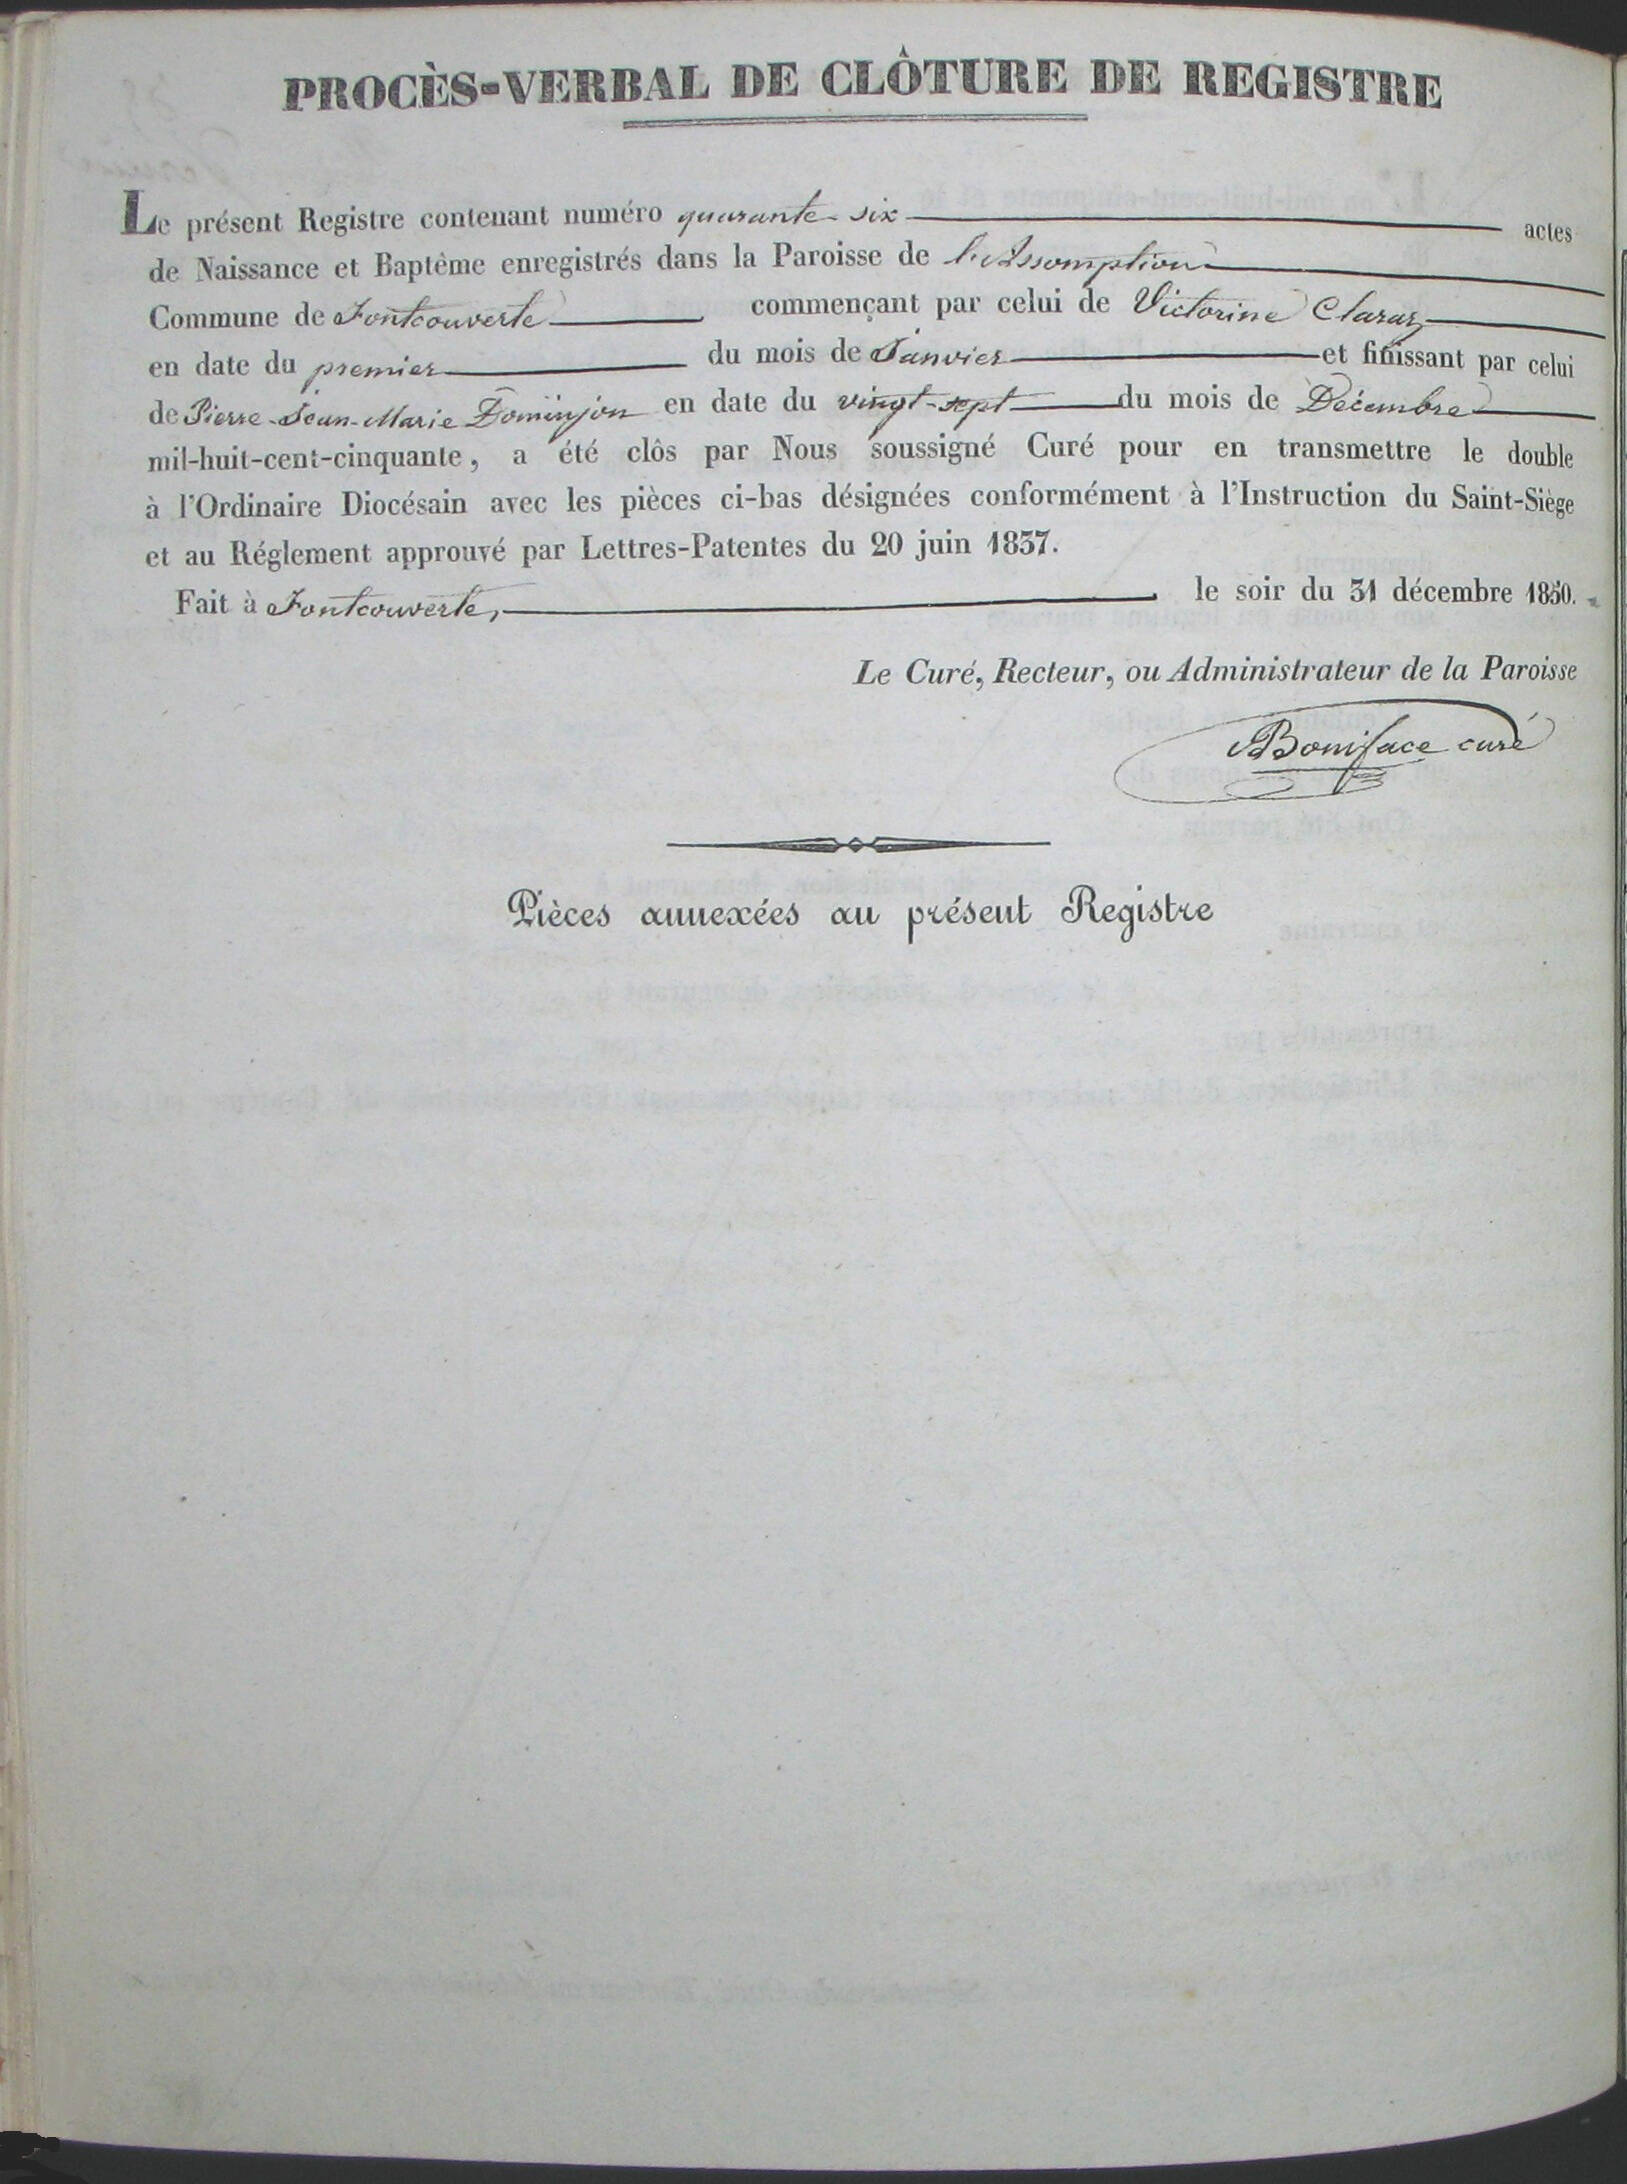 PROCÈS-VERBAL DE CLÔTURE DE REGISTRE
Le présent Registre contenant numéro quarante-six actes
de Naissance et Baptême enregistrés dans la Paroisse de l'Assomption
Commune de Fontcouverte commençant par celui de Victorine Claraz
en date du premier du mois de Janvier et finissant par celui
de Pierre-Jean-Marie Dominjon en date du vingt-sept du mois de Décembre
mil-huit-cent-cinquante, a été clôs par Nous soussigné Curé pour en transmettre le double
à l'Ordinaire Diocésain avec les pièces ci-bas désignées conformément à l'Instruction du Saint-Siège
et au Réglement approuvé par Lettres-Patentes du 20 juin 1837.
Fait à Fontcouverte, le soir du 31 décembre 1850.
Le Curé, Recteur, ou Administrateur de la Paroisse
Boniface curé
Pièces annexées au présent Registre